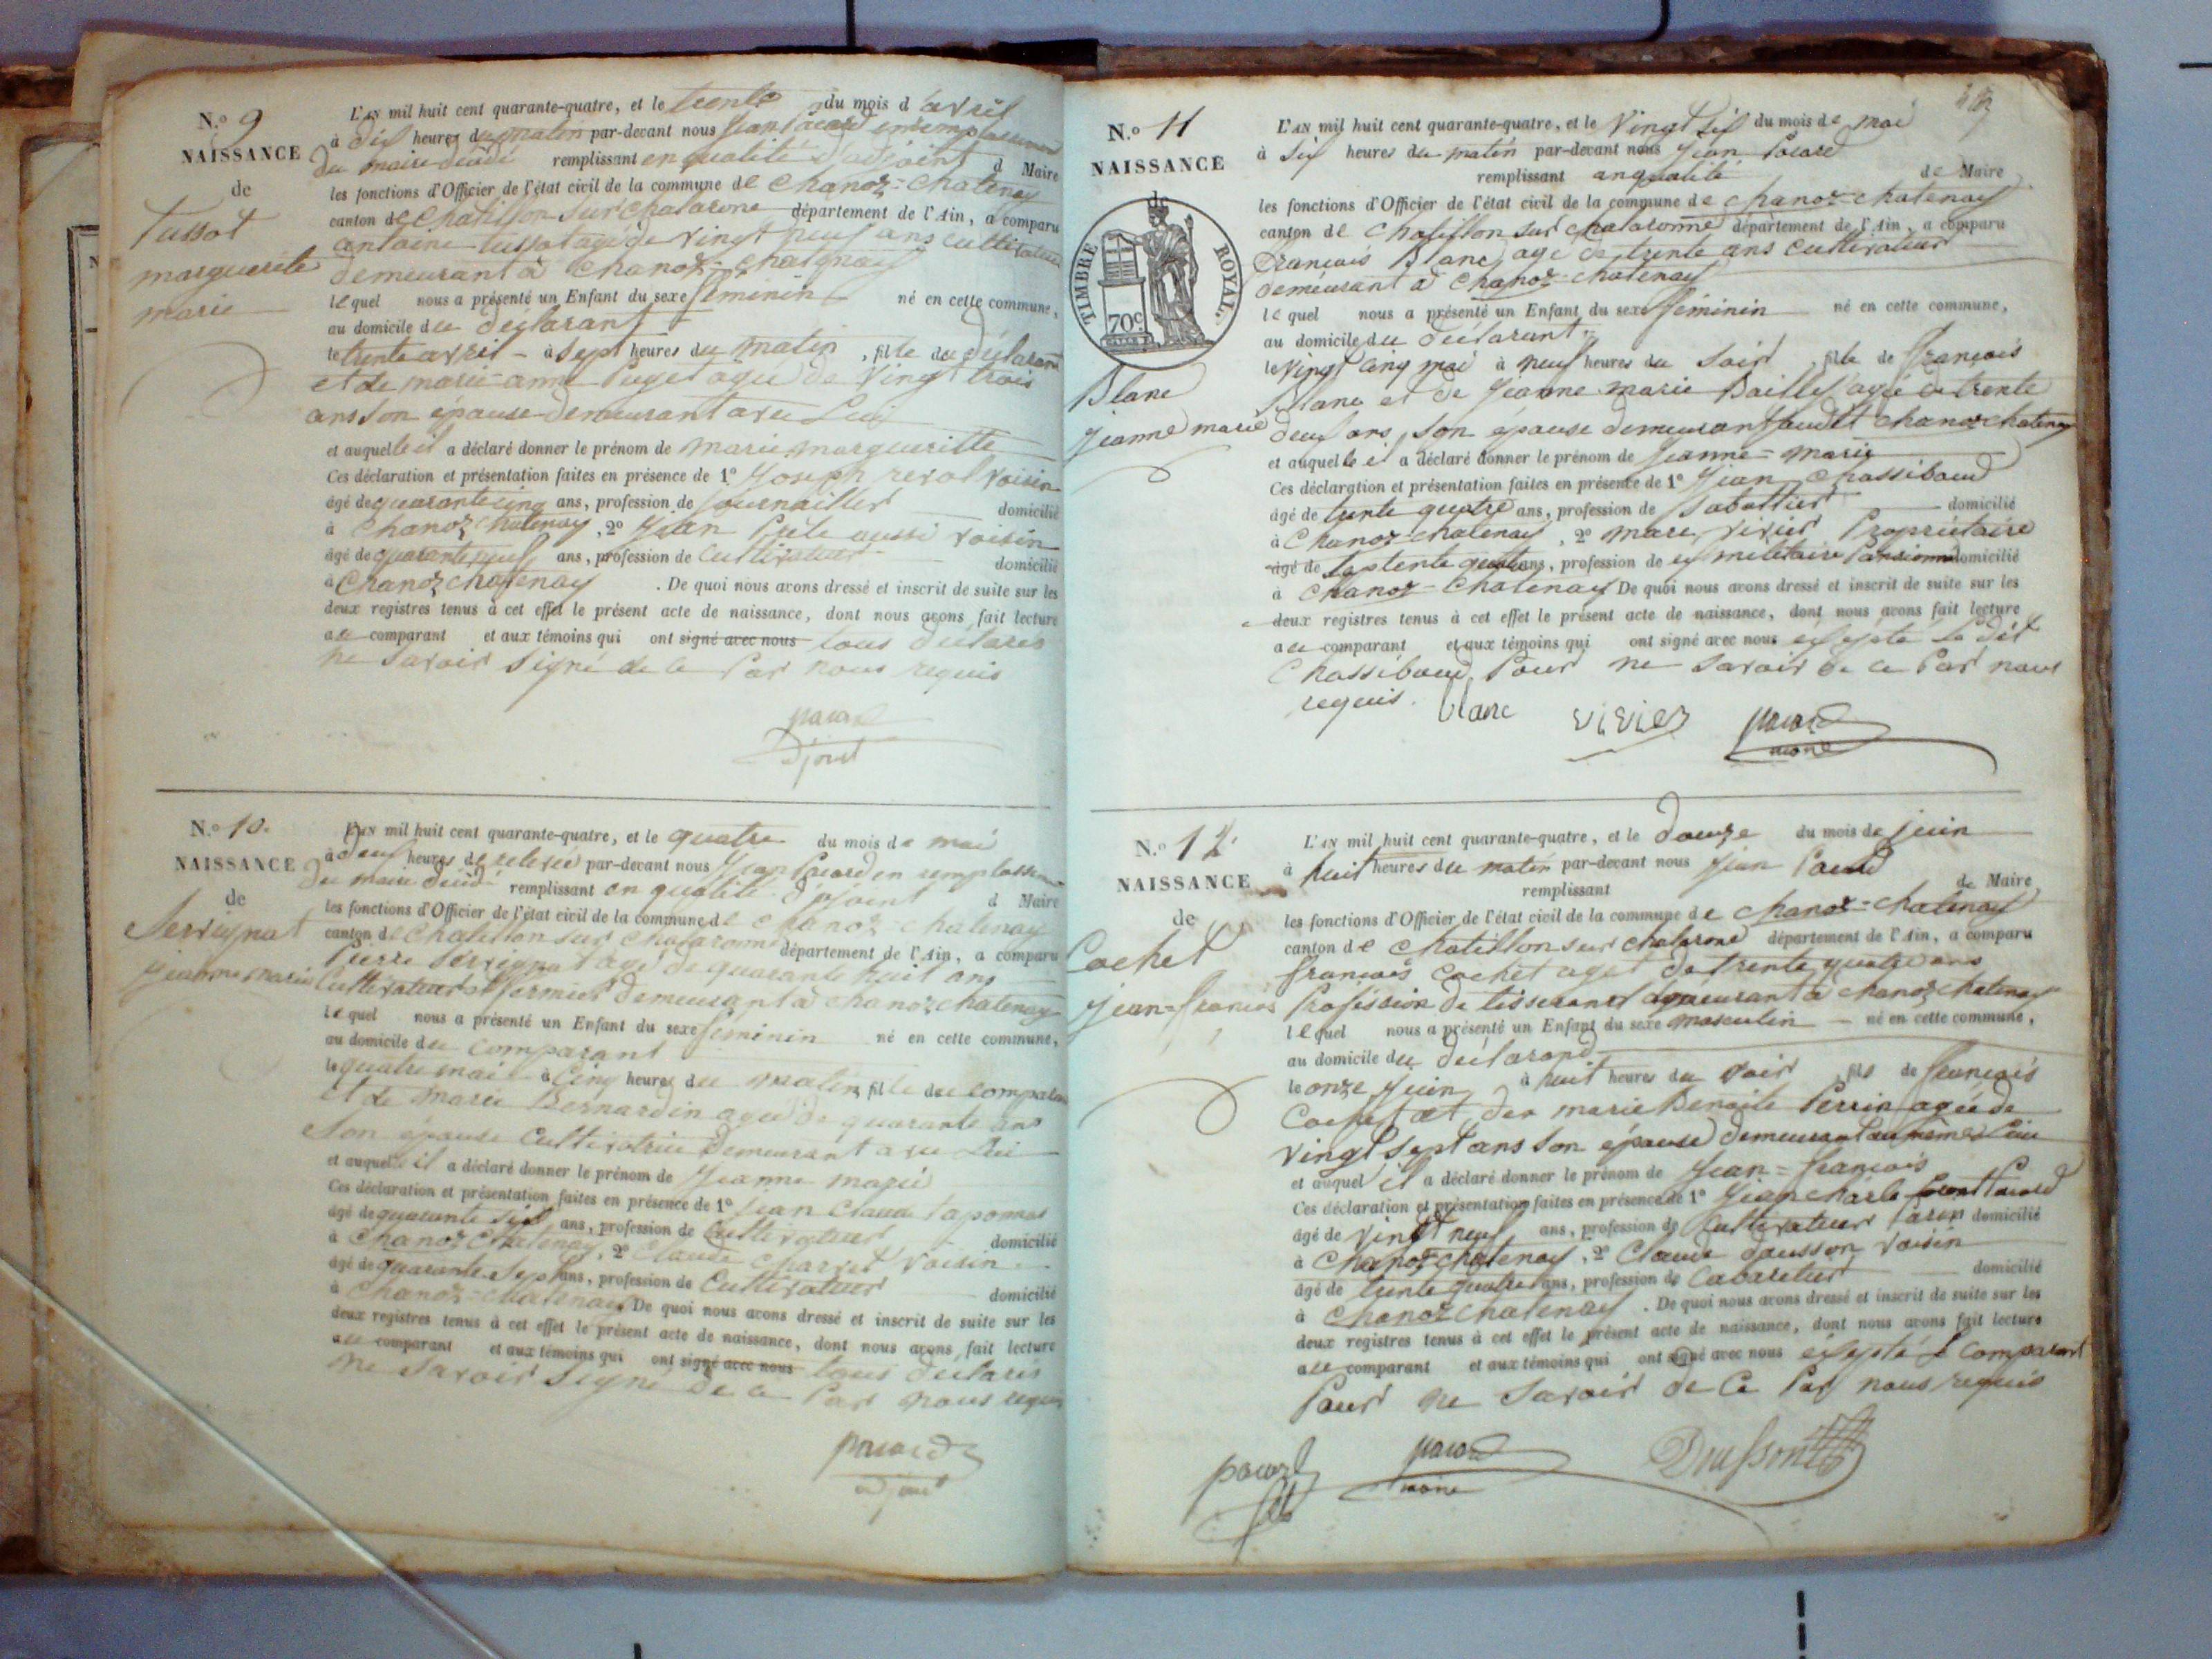 N.o 9
NAISSANCE
de
Tussot
marguerite
marie
L'AN mil huit cent quarante-quatre, et le trente du mois d'avril
à dix heures du matin par-devant nous Jean Pacard en remplacement
du maire décédé remplissant en qualité d'adjoint d Maire
les fonctions d'Officier de l'état civil de la commune de Chanoz-Chatenay
canton de Chatillon sur Chalarone département de l'Ain, a comparu
antoine tussot agé de vingt neuf ans cultivateur
demeurant à Chanoz-Chatenay
lequel nous a présenté un Enfant du sexe féminin né en cette commune,
au domicile du déclarant
le trente avril à sept heures du matin, fille du déclarant
et de marie anne Puget agée de vingt trois
ans son épouse demeurant avec Lui
et auquelle il a déclaré donner le prénom de marie margueritte
Ces déclaration et présentation faites en présence de 1o Joseph revol voisin
âgé de quarante cinq ans, profession de Journaillier domicilié
à Chanoz Chatenay, 2o Jean Prête aussi voisin
âgé de quarante neuf ans, profession de Cultivateur domicilié
à Chanoz chatenay. De quoi nous avons dressé et inscrit de suite sur les
deux registres tenus à cet effet le présent acte de naissance, dont nous avons fait lecture
au comparant et aux témoins qui ont signé avec nous tous déclarés
ne savoir signé de ce Par nous requis
pacard
adjoint
N.o 10.
NAISSANCE
de
Servignat
jeanne marie
L'AN mil huit cent quarante-quatre, et le quatre du mois de mai
à deux heures de relevée par-devant nous Jean Pacard en remplassement
du maire décédé remplissant en qualité d'adjoint d Maire
les fonctions d'Officier de l'état civil de la commune de Chanoz-chatenay
canton de Chatillon sur Chalaronne département de l'Ain, a comparu
Pierre Servignat agé de quarante huit ans
Cultivateur fermier demeurant à chanoz chatenay
lequel nous a présenté un Enfant du sexe féminin né en cette commune,
au domicile du comparant
le quatre mai à Cinq heures du matin, fille du comparant
et de marie Bernardin agée de quarante ans
son épouse Cultivatrice demeurant avec Lui
et auquelle il a déclaré donner le prénom de Jeanne marie
Ces déclaration et présentation faites en présence de 1o Jean Claude Taponat
âgé de quarante six ans, profession de Cultivateur domicilié
à Chanoz Chatenay, 2o Claude Charvet voisin
âgé de quarante Sept ans, profession de Cultivateur domicilié
à Chanoz-Chatenay De quoi nous avons dressé et inscrit de suite sur les
deux registres tenus à cet effet le présent acte de naissance, dont nous avons fait lecture
au comparant et aux témoins qui ont signé avec nous tous déclarés
ne savoir signé de ce Par nous requis
pacard
adjoint
N.o 11
NAISSANCE
de
TIMBRE ROYAL.
70c
Blanc
jeanne marie
L'AN mil huit cent quarante-quatre, et le Vingt six du mois de mai
à six heures du matin par-devant nous Jean Pacard
remplissant anqualité de Maire
les fonctions d'Officier de l'état civil de la commune de chanoz-chatenay
canton de Chatillon sur Chalaronne département de l'Ain, a comparu
François Blanc agé de trente ans cultivateur
demeurant à Chanoz-Chatenay
lequel nous a présenté un Enfant du sexe féminin né en cette commune,
au domicile du déclarant
le Vingt Cinq mai à neuf heures du soir, fille de François
Blanc et de Jeanne marie Bailly agée de trente
deux ans, son épouse demeurant audit chanoz chatenay
et auquelle il a déclaré donner le prénom de Jeanne-marie
Ces déclaration et présentation faites en présence de 1o Jean Chassiboud
âgé de trente quatre ans, profession de Sabottier domicilié
à Chanoz-chatenay, 2o Marc Vivier Propriétaire
âgé de septente quatre ans, profession de ex militaire Pansionné domicilié
à Chanoz-Chatenay De quoi nous avons dressé et inscrit de suite sur les
deux registres tenus à cet effet le présent acte de naissance, dont nous avons fait lecture
au comparant et aux témoins qui ont signé avec nous exsepté le dit
Chassiboud Pour ne savoir de ce Par nous
requis. blanc vivier pacard
maire
N.o 12.
NAISSANCE
de
Cochet
jean-françois
L'AN mil huit cent quarante-quatre, et le douze du mois de juin
à huit heures du matin par-devant nous Jean Pacard
remplissant de Maire
les fonctions d'Officier de l'état civil de la commune de chanoz-chatenay
canton de Chatillon sur chalarone département de l'Ain, a comparu
françois cochet aget de trente quatre ans
Profession de tisserand demeurant à chanoz chatenay
lequel nous a présenté un Enfant du sexe masculin né en cette commune,
au domicile du déclarand
le onze Juin à huit heures du soir, fils de françois
Cochet et de marie Benoite Perrin agée de
vingt sept ans son épouse demeurant au même Lieu
et auquel il a déclaré donner le prénom de Jean-françois
Ces déclaration et présentation faites en présence de 1o Jean Charle Pacard
âgé de vingt neuf ans, profession de Cultivateur domicilié
à Chanoz chatenay, 2o Claude Dausson voisin
âgé de trente quatre ans, profession de Cabaretier domicilié
à Chanoz chatenay. De quoi nous avons dressé et inscrit de suite sur les
deux registres tenus à cet effet le présent acte de naissance, dont nous avons fait lecture
au comparant et aux témoins qui ont signé avec nous exsepté le Comparant
Pour ne savoir de ce Par nous requis
pacard pacard
fils maire